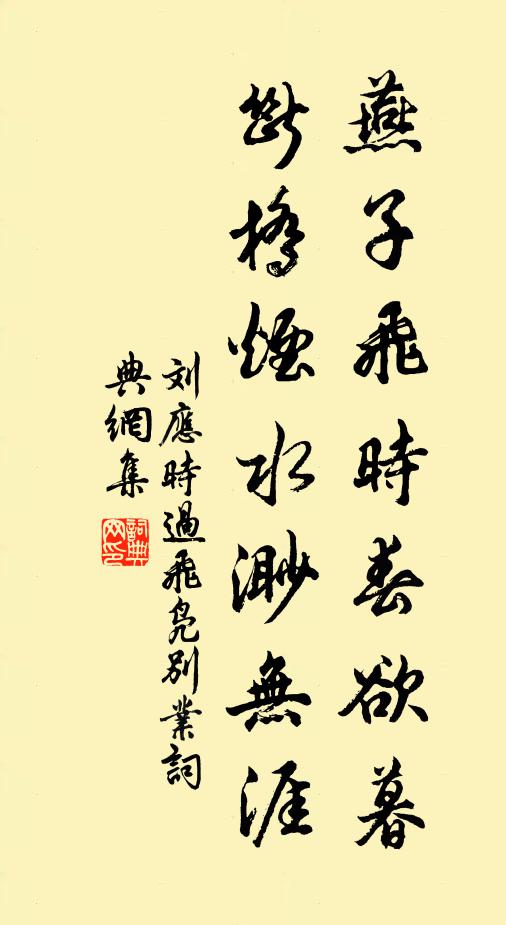 燕子飛時春欲暮
斷橋煙水渺無涯
刘應時過飛鳧別業詞
典網集
詞典網印